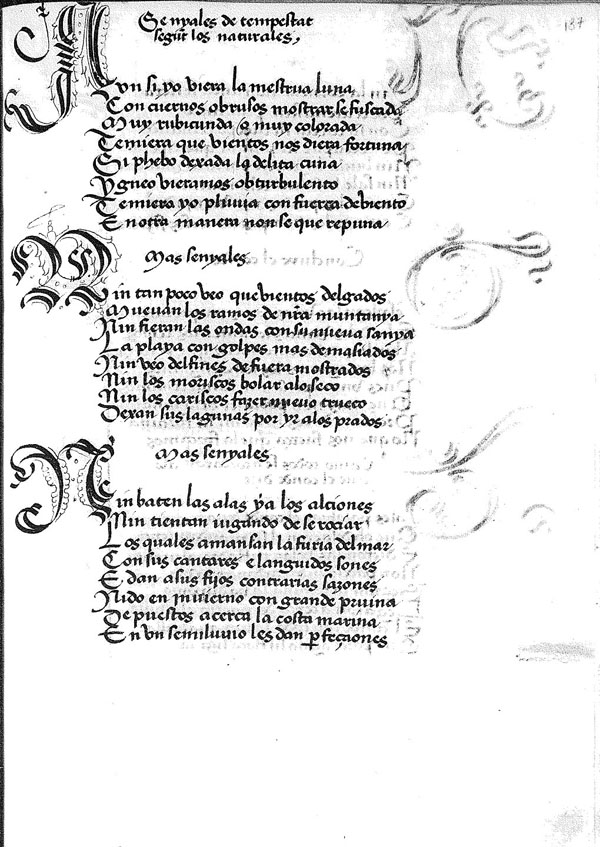 Senyales de tempestat
segũt los naturales,
187
Aun si yo viera la mestrua luna
Con cuernos obtusos mostrar se fuscada
Muy rubicunda o muy colorada
Temiera que vientos nos diera fortuna
Si phebo dexada la delita cuna
Ygneo vieramos obturbulento
Temiera yo pluuia con fuerça debiento
En otra manera non se que repuna
Mas senyales
Nin tan poco veo que vientos delgados
Mueuan los ramos de nr̃a muntanya
Nin fieran las ondas con su nueua sanya
La playa con golpes mas demasiados
Nin veo delfines de fuera mostrados
Nin los moriscos bolar alo seco
Nin los cariscos fazer nueuo trueco
Dexan sus lagunas por yr alos prados
Mas senyales
Nin baten las alas ya los alciones
Nin tientan iugando de se rociar
Los quales amansan la furia del mar
Con sus cantares e languidos sones
E dan a sus fijos contrarias sazones
Nido en inuierno con grande pruina
De puestos acerca la costa marina
En vn semiluuio les dan pfeçiones